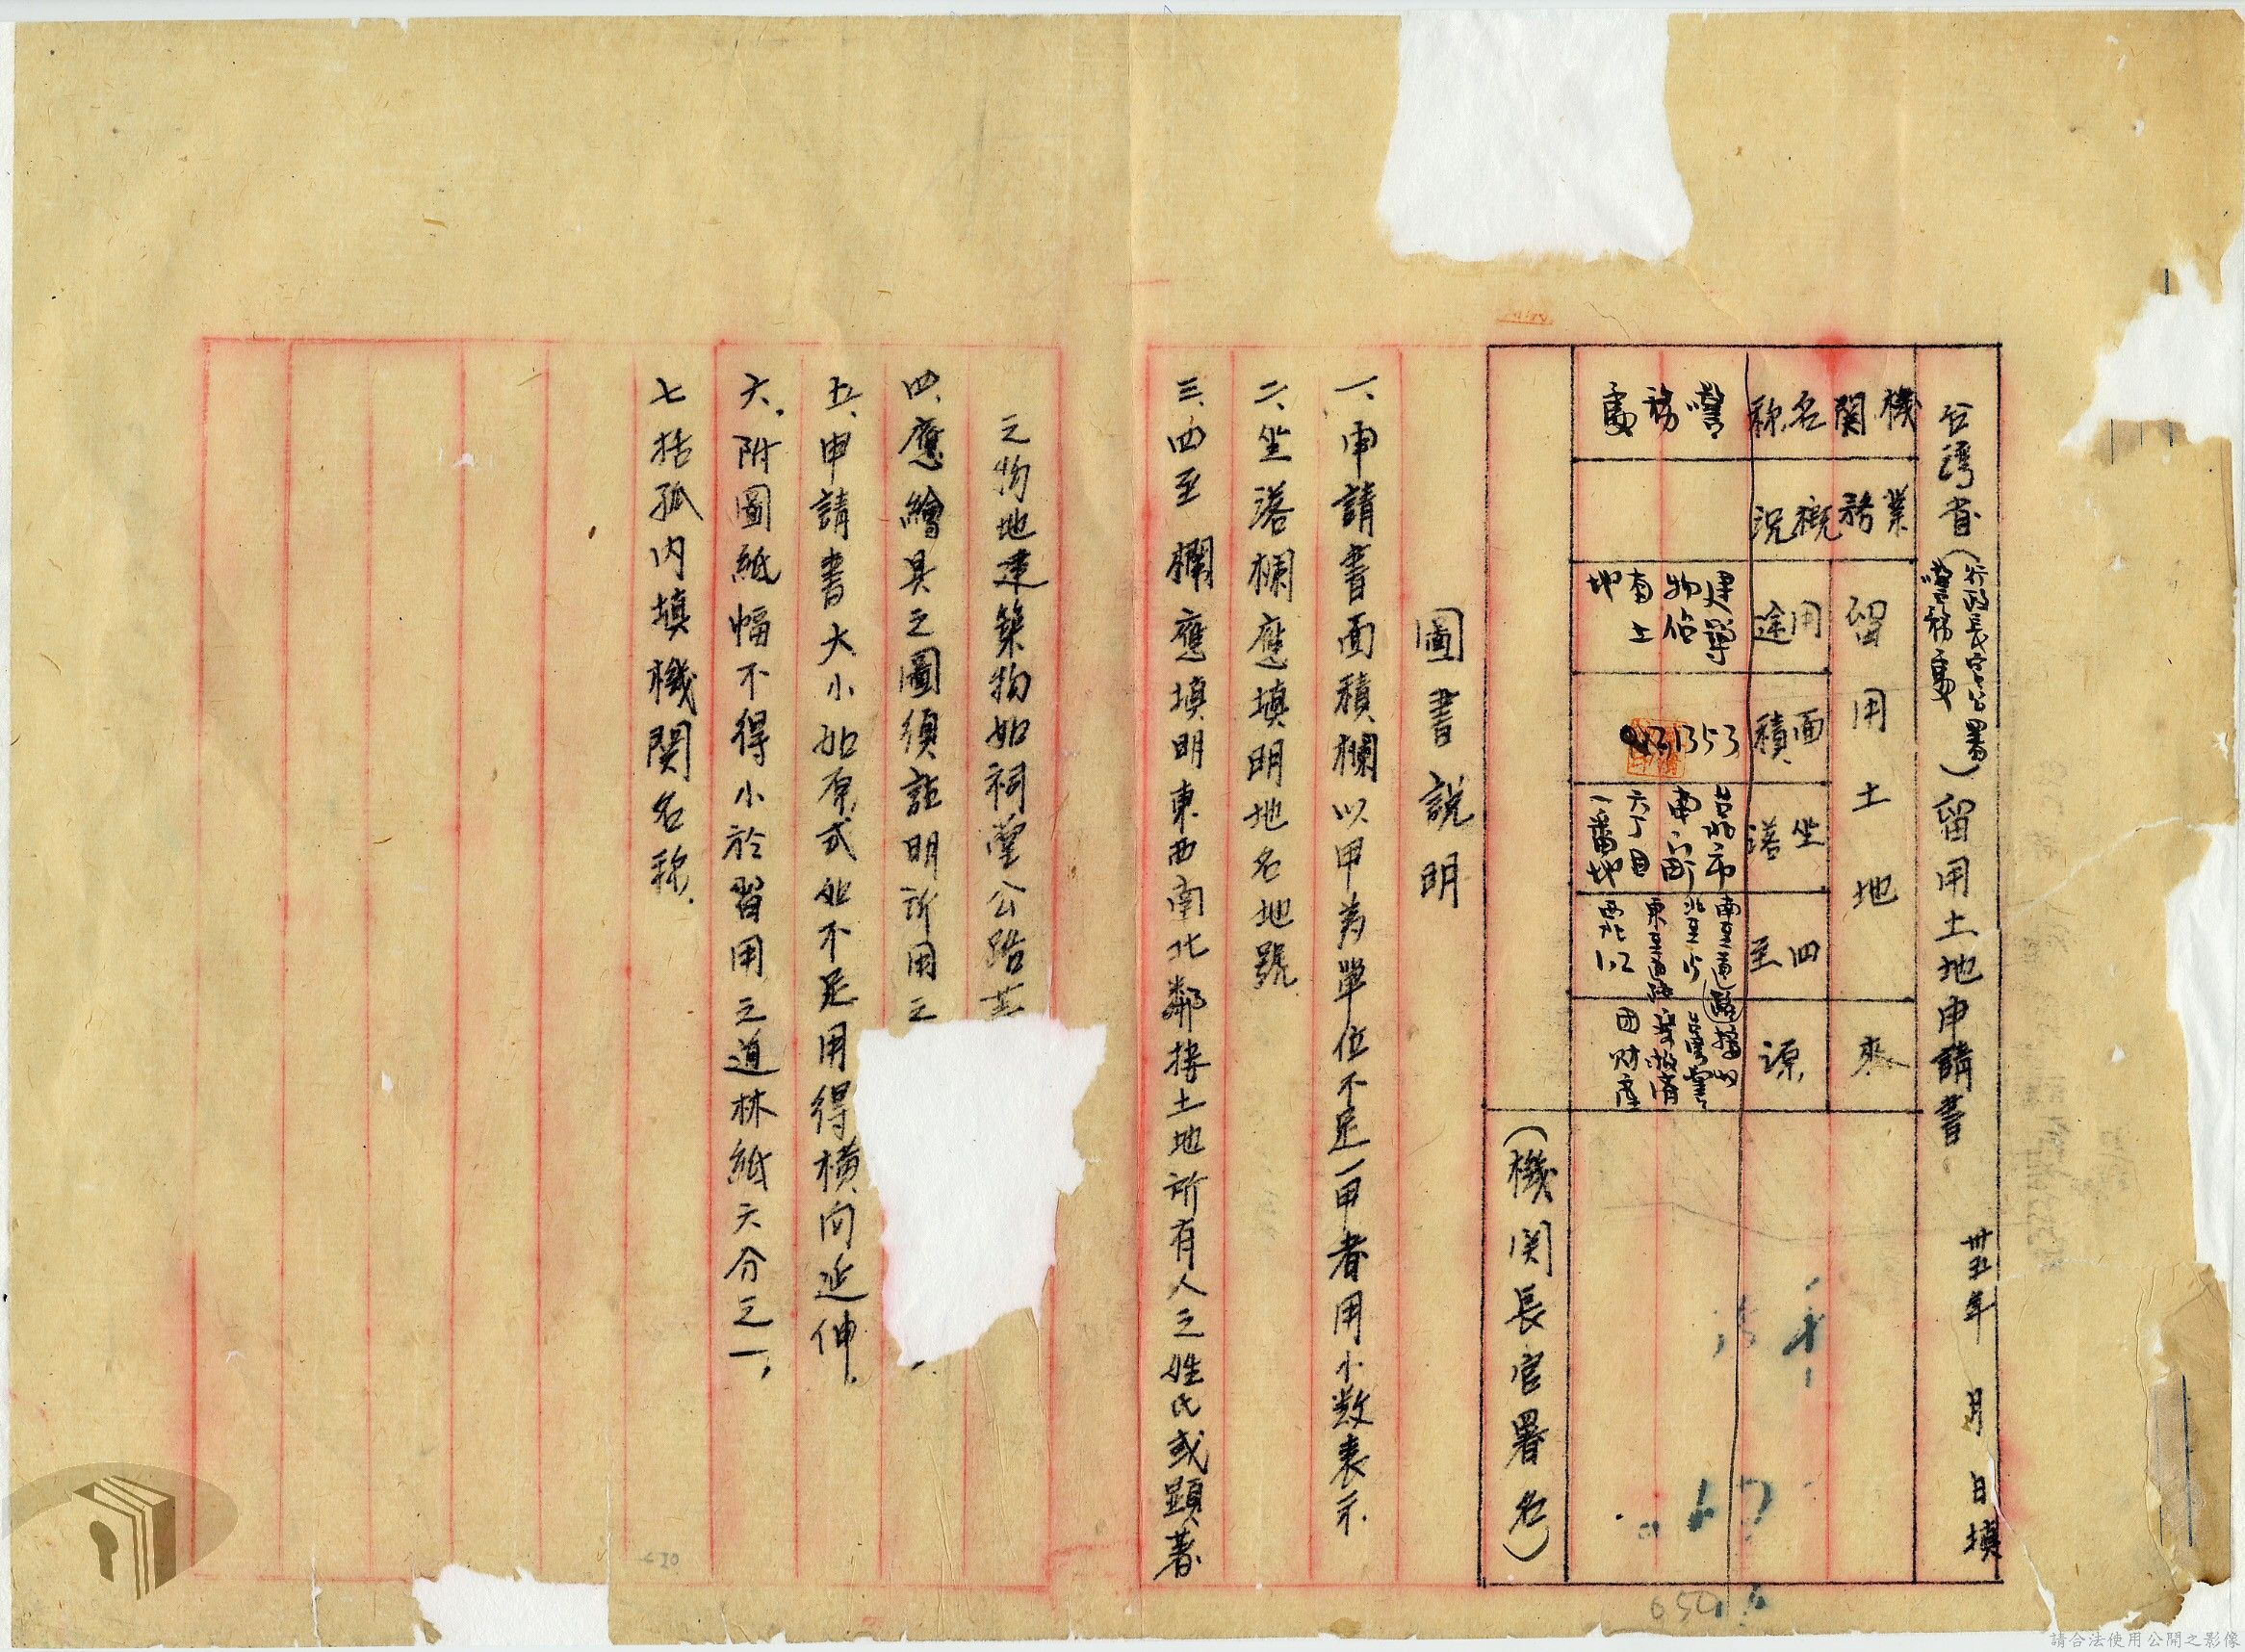 台湾省(行政長官公署警務處)留用土地申請書
卅五年　月　日填
機関名称
業務概況
留用土地
用途
面積
坐落
四至
來源
警務處
建築物佔有土地
1353
台北市
南門町
六丁目
一番地
南至道路
東至道路
財產
(機関長官署名)
圖書說明
一、申請書面積欄以甲為單位不足一甲者用小数表示.
二、坐落欄應填明地名地號
三、四至欄應填明東西南北鄰接土地所有人之姓氏或顕著
之物地建築物如祠堂公路
四、應繪具之圖須註明所用之
五、申請書大小如原式如不足用得橫向延伸.
六.附圖紙幅不得小於習用之道林紙六分之一,
七括孤内填機関名称.
請合法使用公開之影像